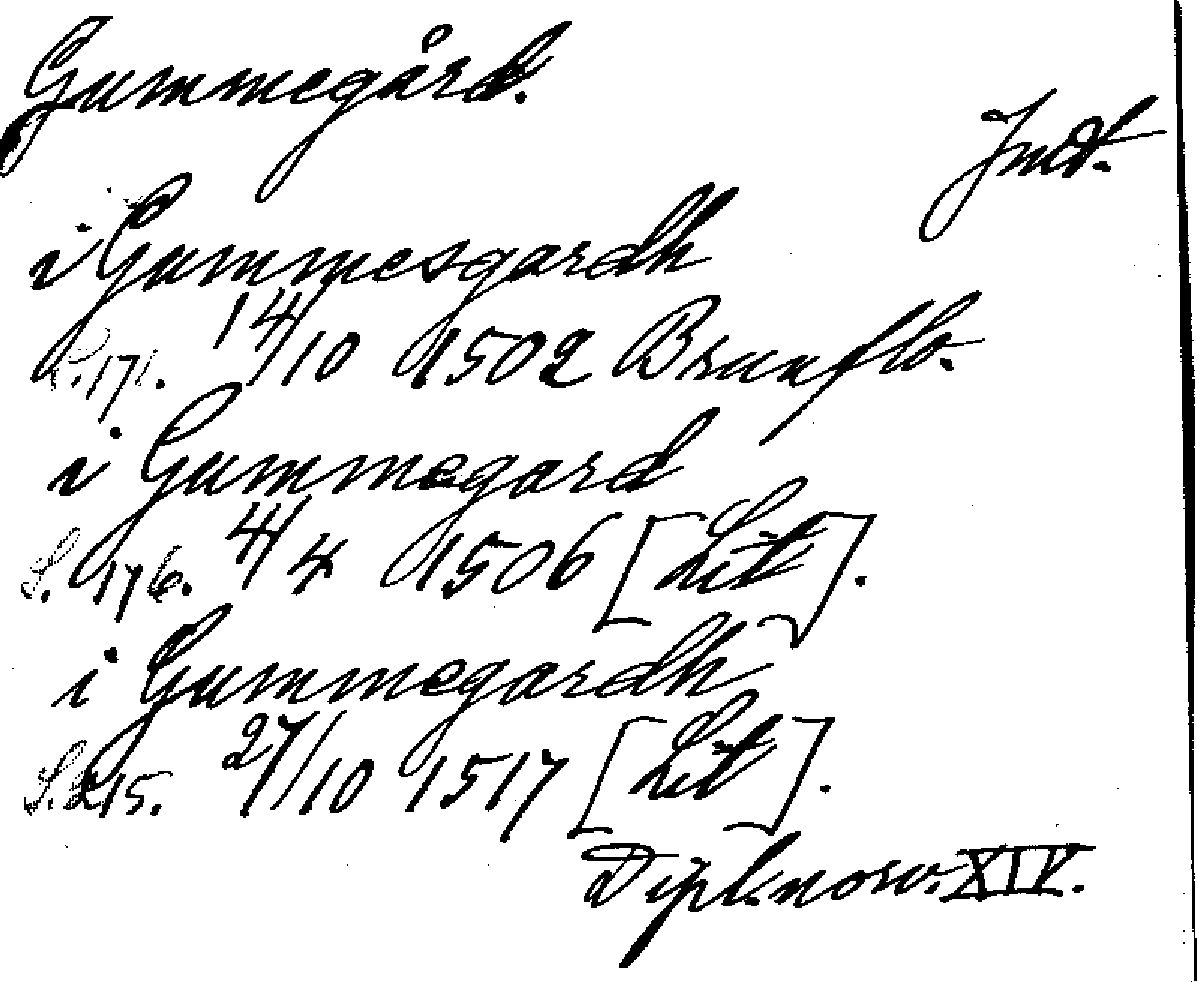 Gummegård.
Jmtl.
i Gummesgardh
S. 171. 14/10 1502 Brunflo.
i Gummegard
S. 176. 4/4 1506 [Lit].
i Gummegardh
S. 215. 27/10 1517 [Lit].
Dipl. norv. XIV.